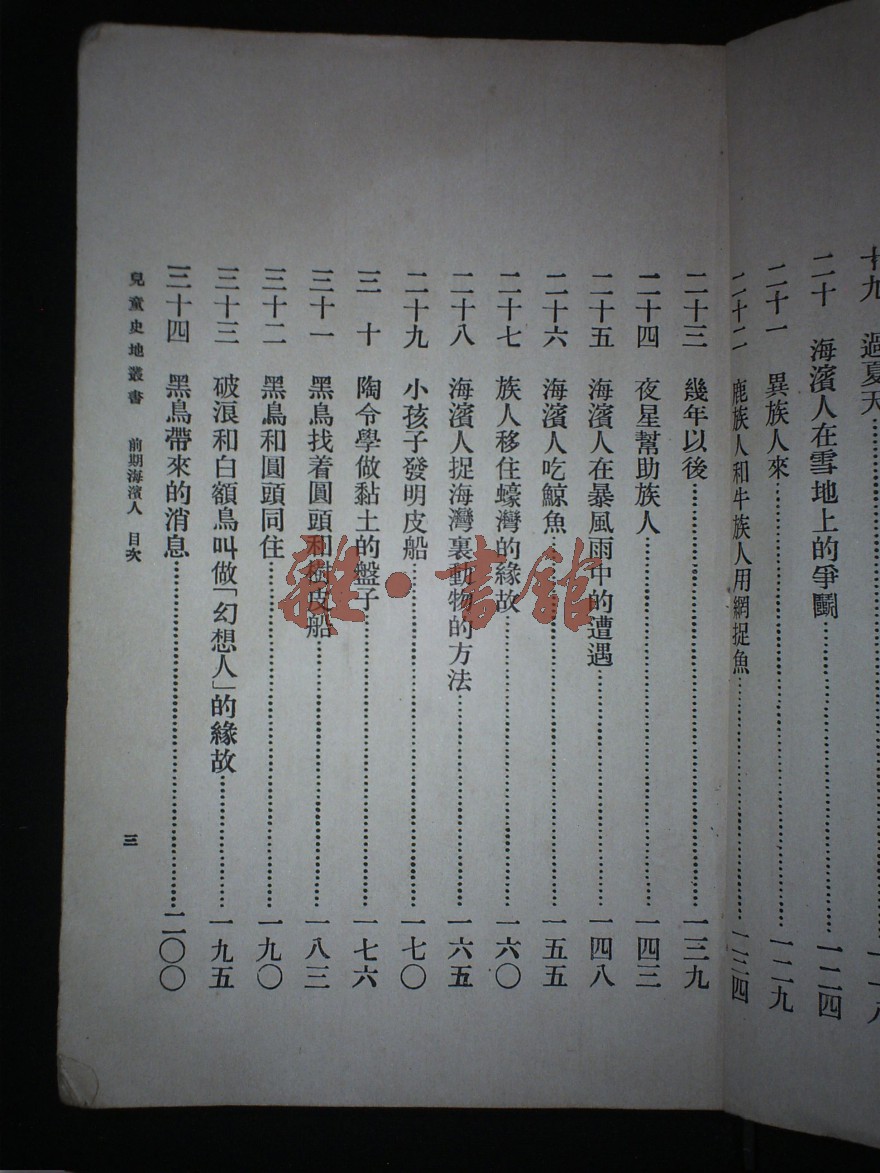 十九　過夏天……一一八
二十　海濱人在雪地上的爭鬭……一二四
二十一　異族人來……一二九
二十二　鹿族人和牛族人用網捉魚……一三四
二十三　幾年以後……一三九
二十四　夜星幫助族人……一四三
二十五　海濱人在暴風雨中的遭遇……一四八
二十六　海濱人吃鯨魚……一五五
二十七　族人移住蠔灣的緣故……一六〇
二十八　海濱人捉海灣裏動物的方法……一六五
二十九　小孩子發明皮船……一七〇
三　十　陶令學做黏土的盤子……一七六
三十一　黑鳥找着圓頭和樹皮船……一八三
三十二　黑鳥和圓頭同住……一九〇
三十三　破浪和白額鳥叫做「幻想人」的緣故……一九五
三十四　黑鳥帶來的消息……二〇〇
兒童史地叢書　前期海濱人　目次
三
雜·書館